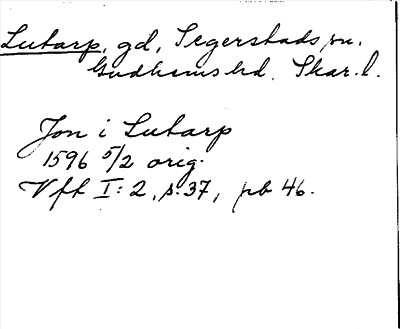 Lutarp, gd, Segerstads sn.
Gudhems hd, Skar. l.
Jon i Lutarp
1596 5/2 orig.
Vft I: 2, s. 37, pb 46.